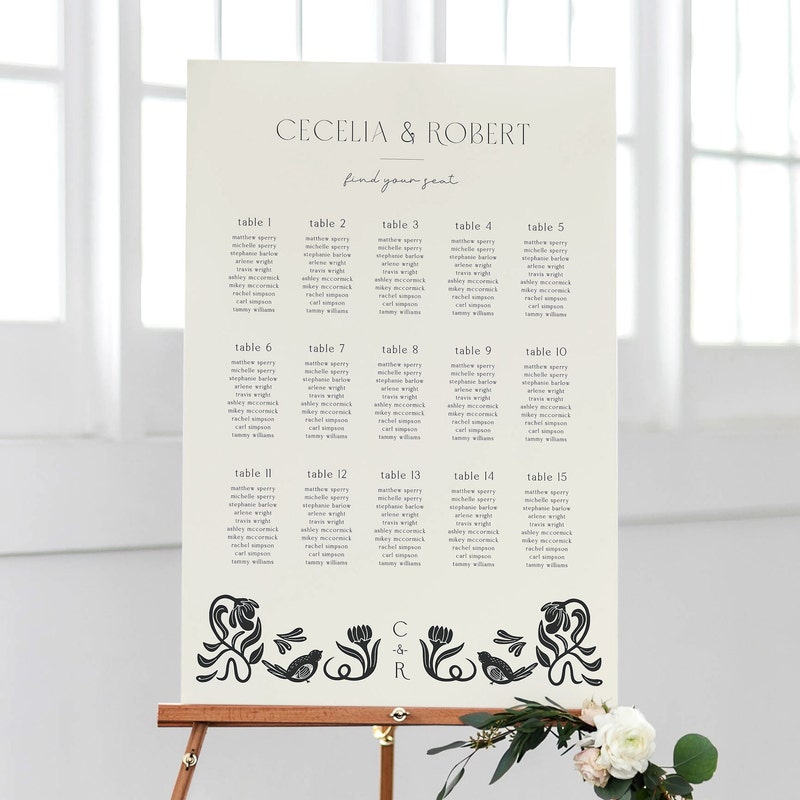 CECELIA & ROBERT
find your seat
table 1 table 2 table 3 table 4 table 5
matthew sperry matthew sperry matthew sperry matthew sperry matthew sperry
michelle sperry michelle sperry michelle sperry michelle sperry michelle sperry
stephanie barlow stephanie barlow stephanie barlow stephanie barlow stephanie barlow
arlene wright arlene wright arlene wright arlene wright arlene wright
travis wright travis wright travis wright travis wright travis wright
ashley mccormick ashley mccormick ashley mccormick ashley mccormick ashley mccormick
mikey mccormick mikey mccormick mikey mccormick mikey mccormick mikey mccormick
rachel simpson rachel simpson rachel simpson rachel simpson rachel simpson
carl simpson carl simpson carl simpson carl simpson carl simpson
tammy williams tammy williams tammy williams tammy williams tammy williams
table 6 table 7 table 8 table 9 table 10
matthew sperry matthew sperry matthew sperry matthew sperry matthew sperry
michelle sperry michelle sperry michelle sperry michelle sperry michelle sperry
stephanie barlow stephanie barlow stephanie barlow stephanie barlow stephanie barlow
arlene wright arlene wright arlene wright arlene wright arlene wright
travis wright travis wright travis wright travis wright travis wright
ashley mccormick ashley mccormick ashley mccormick ashley mccormick ashley mccormick
mikey mccormick mikey mccormick mikey mccormick mikey mccormick mikey mccormick
rachel simpson rachel simpson rachel simpson rachel simpson rachel simpson
carl simpson carl simpson carl simpson carl simpson carl simpson
tammy williams tammy williams tammy williams tammy williams tammy williams
table 11 table 12 table 13 table 14 table 15
matthew sperry matthew sperry matthew sperry matthew sperry matthew sperry
michelle sperry michelle sperry michelle sperry michelle sperry michelle sperry
stephanie barlow stephanie barlow stephanie barlow stephanie barlow stephanie barlow
arlene wright arlene wright arlene wright arlene wright arlene wright
travis wright travis wright travis wright travis wright travis wright
ashley mccormick ashley mccormick ashley mccormick ashley mccormick ashley mccormick
mikey mccormick mikey mccormick mikey mccormick mikey mccormick mikey mccormick
rachel simpson rachel simpson rachel simpson rachel simpson rachel simpson
carl simpson carl simpson carl simpson carl simpson carl simpson
tammy williams tammy williams tammy williams tammy williams tammy williams
C
-&-
R